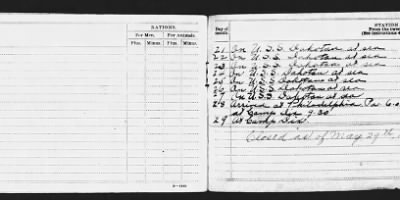 RATIONS.
For Men.
For Animals.
Plus.
Minus.
Plus.
Minus.
Day of month.
STATION
21 On U.S.S. Dakotan at sea
22 On U.S.S. Dakotan at sea
23 On U.S.S. Dakotan at sea
24 On U.S.S. Dakotan at sea
25 On U.S.S. Dakotan at sea
26 On U.S.S. Dakotan at sea
27 On U.S.S. Dakotan at sea
28 Arrived at Philadelphia Pa.
at Camp Dix 9:30
29 At Camp Dix
Closed as of May 29th,